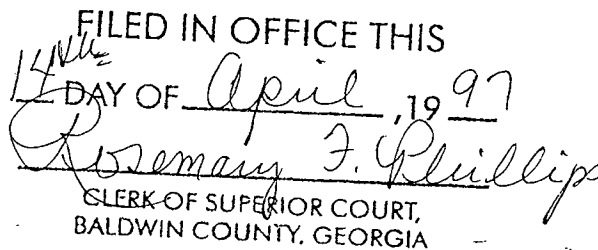 FILED IN OFFICE THIS
14th DAY OF April, 19 97
Rosemary F. Phillips
CLERK OF SUPERIOR COURT,
BALDWIN COUNTY, GEORGIA